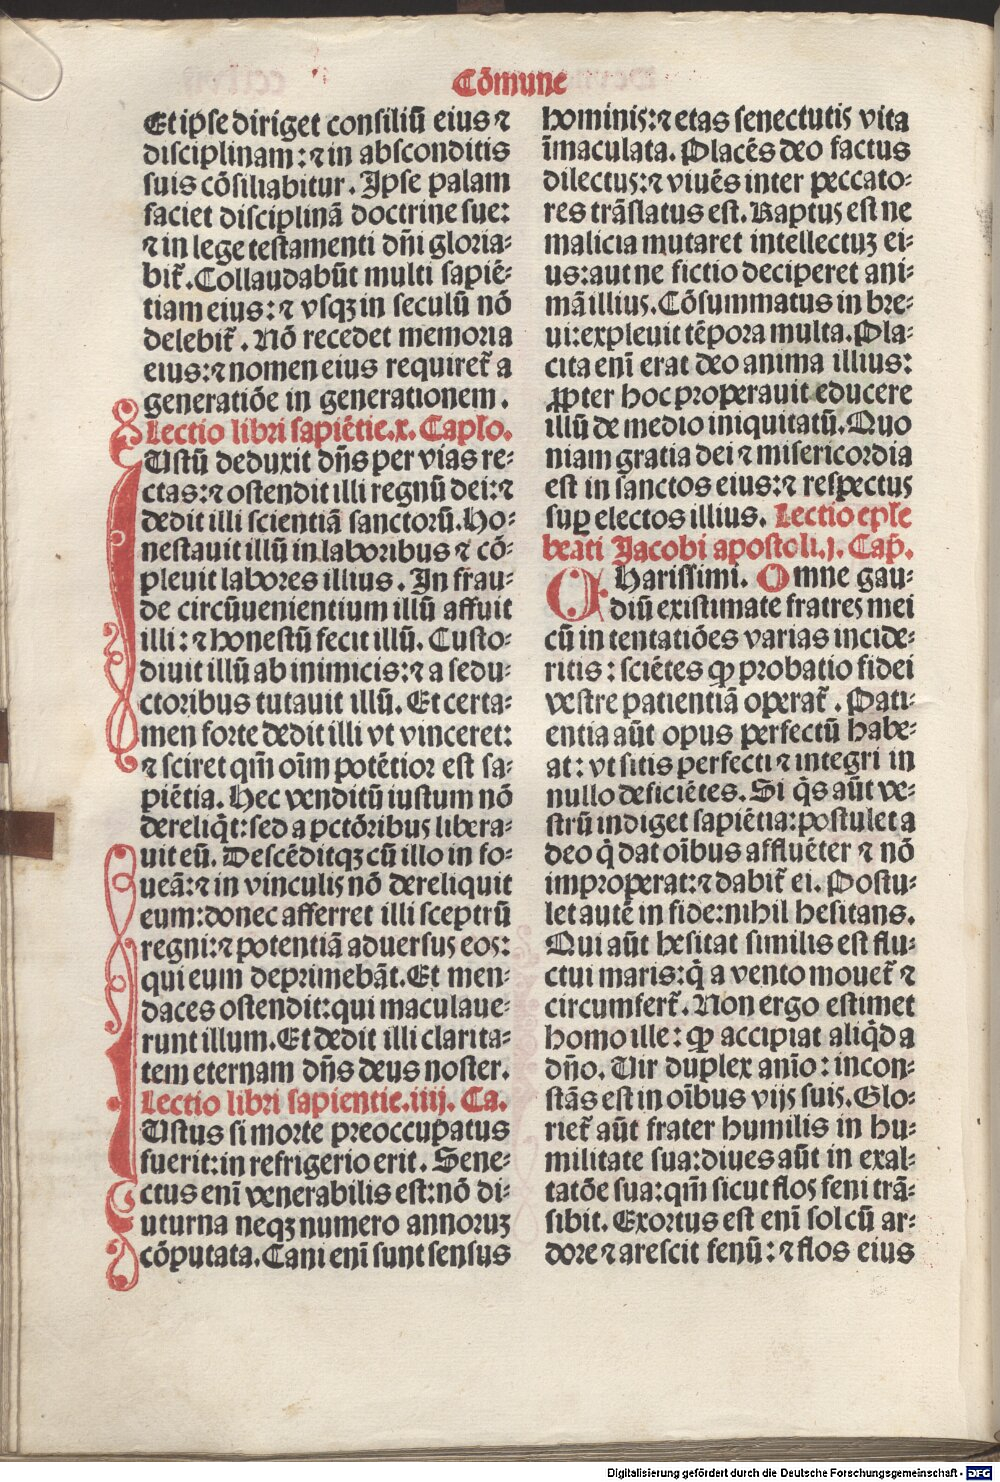 Cōmune
Et ipse diriget consiliū eius ⁊
disciplinam: ⁊ in absconditis
suis cōsiliabitur. Ipse palam
faciet disciplinā doctrine sue:
⁊ in lege testamenti dn̄i gloria⸗
bit̄. Collaudabūt multi sapiē⸗
tiam eius: ⁊ vsqꝫ in seculū nō
delebit̄. Nō recedet memoria
eius: ⁊ nomen eius requiret̄ a
generatiōe in generationem.
Lectio libri sapiētie.x. Caplo.
IUstū deduxit dn̄s per vias re⸗
ctas: ⁊ ostendit illi regnū dei: ⁊
dedit illi scientiā sanctorū. Ho⸗
nestauit illū in laboribus ⁊ cō⸗
pleuit labores illius. In frau⸗
de circūuenientium illū affuit
illi: ⁊ honestū fecit illū. Custo⸗
diuit illū ab inimicis: ⁊ a sedu⸗
ctoribus tutauit illū. Et certa⸗
men forte dedit illi vt vinceret:
⁊ sciret qm̄ oīm potētior est sa⸗
piētia. Hec venditū iustum nō
dereliq̄t: sed a pctōribus libera⸗
uit eū. Descēditqꝫ cū illo in fo⸗
ueā: ⁊ in vinculis nō dereliquit
eum: donec afferret illi sceptrū
regni: ⁊ potentiā aduersus eos:
qui eum deprimebāt. Et men⸗
daces ostendit: qui maculaue⸗
runt illum. Et dedit illi clarita⸗
tem eternam dn̄s deus noster.
Lectio libri sapientie.iiij. Ca.
IUstus si morte preoccupatus
fuerit: in refrigerio erit. Sene⸗
ctus enī venerabilis est: nō di⸗
uturna neqꝫ numero annoruꝫ
cōputata. Cani enī sunt sensus
hominis: ⁊ etas senectutis vita
īmaculata. Placēs deo factus
dilectus: ⁊ viuēs inter peccato⸗
res trāslatus est. Raptus est ne
malicia mutaret intellectuꝫ ei⸗
us: aut ne fictio deciperet ani⸗
mā illius. Cōsummatus in bre⸗
ui: expleuit tēpora multa. Pla⸗
cita enī erat deo anima illius:
ꝓpter hoc properauit educere
illū de medio iniquitatū. Quo
niam gratia dei ⁊ misericordia
est in sanctos eius: ⁊ respectus
sup̱ electos illius. Lectio ep̄le
beati Jacobi apostoli.j. Cap̄.
CHarissimi. Omne gau⸗
diū existimate fratres mei
cū in tentatiōes varias incide⸗
ritis: sciētes ꝙ probatio fidei
vestre patientiā operat̄. Pati⸗
entia aūt opus perfectū habe⸗
at: vt sitis perfecti ⁊ integri in
nullo deficiētes. Si q̄s aūt ve⸗
strū indiget sapiētia: postulet a
deo q̄ dat oībus affluēter ⁊ nō
improperat: ⁊ dabit̄ ei. Postu⸗
let autē in fide: nihil hesitans.
Qui aūt hesitat similis est flu⸗
ctui maris: q̄ a vento mouet̄ ⁊
circumfert̄. Non ergo estimet
homo ille: ꝙ accipiat aliq̄d a
dn̄o. Vir duplex anīo: incon⸗
stās est in oībus vijs suis. Glo⸗
riet̄ aūt frater humilis in hu⸗
militate sua: diues aūt in exal⸗
tatōe sua: qm̄ sicut flos feni trā⸗
sibit. Exortus est enī sol cū ar⸗
dore ⁊ arescit fenū: ⁊ flos eius
Digitalisierung gefördert durch die Deutsche Forschungsgemeinschaft - DFG